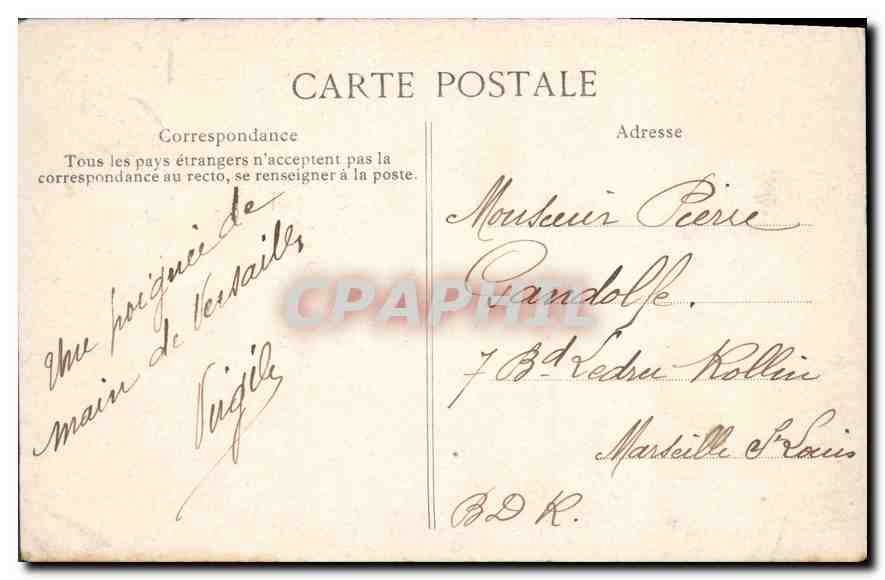 CARTE POSTALE
Correspondance
Tous les pays étrangers n'acceptent pas la
correspondance au recto, se renseigner à la poste.
Une poignée de
main de Versailles
Virgile
Adresse
Monsieur Pierre
Gandolfe.
7 Bd Ledru Rollin
Marseille St Louis
B D R.
CPAPHIL